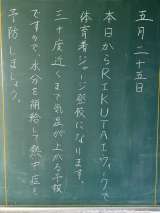 五月二十五日
本日からRIKUTAIウィークで
体育着ジャージ登校になります。
三十度近くまで気温が上がる予報
ですので、水分を補給して熱中症を
予防しましょう。